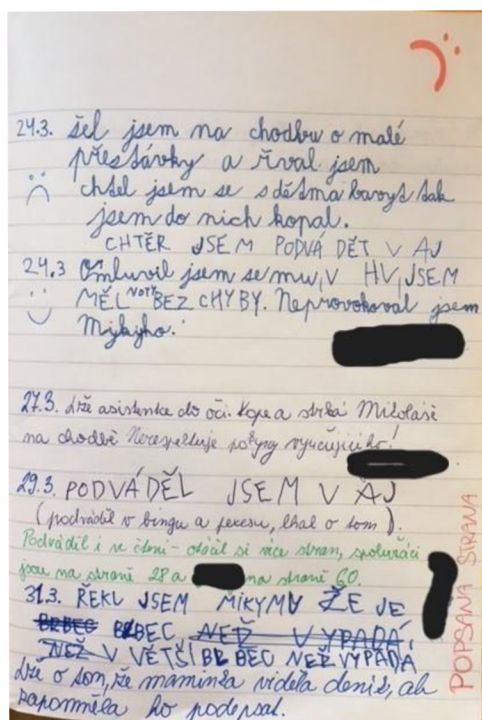 24.3. šel jsem na chodbu o malé
přestávky a řval jsem
chtěl jsem se s dětma bavyt tak
jsem do nich kopal.
CHTĚR JSEM PODVÁDĚT V AJ
24.3 Omluvil jsem se mu, V HV, JSEM
MĚL NOTY BEZ CHYBY. Neprovokoval jsem
Mykyho.
27.3. Lže asistentce do očí. Kope a strká Mikoláše
na chodbě Nerespektuje pokyny vyučujícího!
29.3. PODVÁDĚL JSEM V AJ
(podváděl v bingu a pexesu, lhal o tom).
Podváděl i ve čtení - otáčil si více stran, spolužáci
jsou na straně 28 a na straně 60.
31.3. ŘEKL JSEM MIKYMU ŽE JE
BLBEC BLBEC, NEŽ VYPADÁ,
NEŽ V VĚTŠÍ BLBEC NEŽ VYPADÁ
Lže o tom, že maminka viděla deníč, ale
zapomněla ho podepsat.
POPSANÁ STRANA